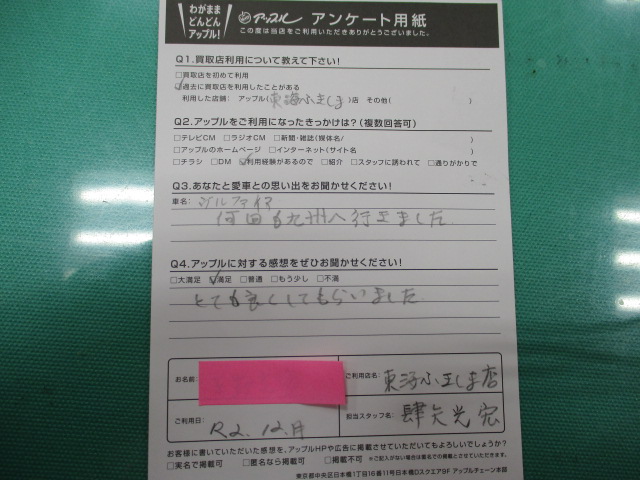 わがまま
どんどん
アップル!
アップル アンケート用紙
この度は当店をご利用いただきありがとうございました。
Q1.買取店利用について教えて下さい!
□買取店を初めて利用
□過去に買取店を利用したことがある
利用した店舗: アップル(東海ふ年しま)店 その他( )
Q2.アップルをご利用になったきっかけは?(複数回答可)
□テレビCM □ラジオCM □新聞・雑誌(媒体名/ )
□アップルのホームページ □インターネット(サイト名 )
□チラシ □DM □利用経験があるので □紹介 □スタッフに誘われて □通りがかりで
Q3.あなたと愛車との思い出をお聞かせください!
車名:
何回も九州へ行きました
Q4.アップルに対する感想をぜひお聞かせください!
□大満足 □満足 □普通 □もう少し □不満
とても良くしてもらいました
お名前:
ご利用店名: 東海ふ年しま店
ご利用日: R2.12.月
担当スタッフ名:
お客様に書いていただいた感想を、アップルHPや広告に掲載させていただいてもよろしいでしょうか?
□実名で掲載可 □匿名なら掲載可 □掲載不可 ※ご記入がない場合は匿名での掲載とさせていただきます。
東京都中央区日本橋1丁目16番11号日本橋Dスクエア9F アップルチェーン本部